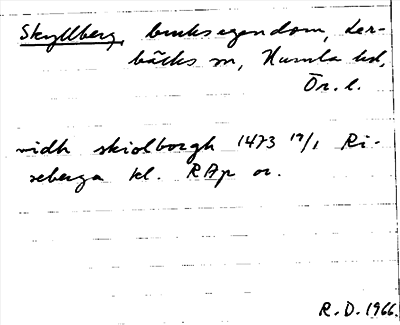 Skyllberg, bruksegendom, Ler-
bäcks sn, Kumla hd,
Ör. l.
vidh skiolborgh 1473 19/1 Ri-
seberga kl. RAp or.
R. D. 1966.